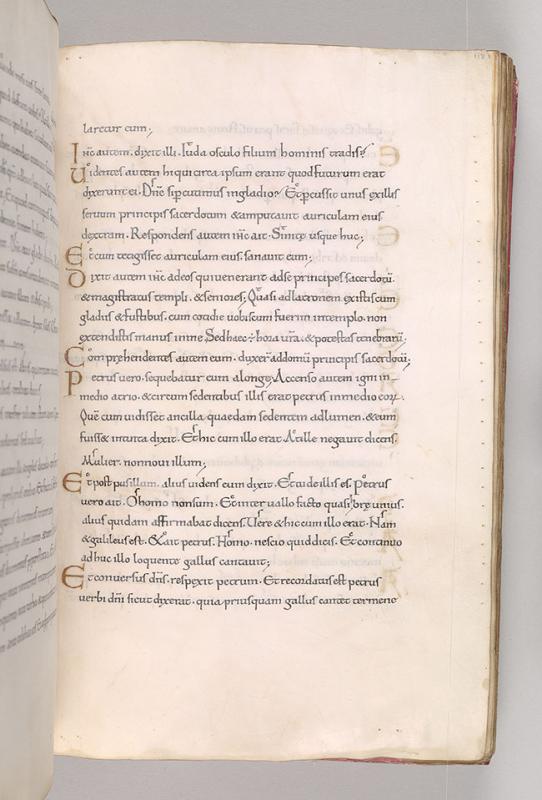 laretur eum;
Ihc autem. dixit illi. Iuda osculo filium hominis tradis?
Uidentes autem hi qui circa ipsum erant quod futurum erat
dixerunt ei. Dne si percutimus in gladio? Et percussit unus ex illis
seruum principis sacerdotum & amputauit auriculam eius
dextram. Respondens autem ihc ait. Sinite usque huc;
Et cum tetigisset auriculam eius sanauit eum;
Dixit autem ihc ad eos qui uenerant ad se principes sacerdotū.
& magistratus templi. & seniores; Quasi ad latronem existis cum
gladiis & fustibus. cum cotidie uobiscum fuerim in templo. non
extendistis manus in me. Sed haec ÷ hora ura. & potestas tenebrarū;
Comprehendentes autem eum. duxer ad domū principis sacerdotū;
Petrus uero. sequebatur eum a longe. Accenso autem igni in
medio atrio. & circum sedentibus illis erat petrus in medio eor.
Quē cum uidisset ancilla quaedam sedentem ad lumen. & eum
fuisset intuita dixit. Et hic cum illo erat. At ille negauit dicens.
Mulier. non noui illum;
Et post pusillum. alius uidens eum dixit. Et tu de illis es. Petrus
uero ait. O homo non sum. Et interuallo facto quasi hore unius.
alius quidam affirmabat dicens. Uere & hic cum illo erat. Nam
& galileus est. & ait petrus. Homo. nescio quid dicis. Et continuo
adhuc illo loquente gallus cantauit;
Et conuersus dns. respexit petrum. Et recordatus est petrus
uerbi dni sicut dixerat. quia priusquam gallus cantet ter me ne